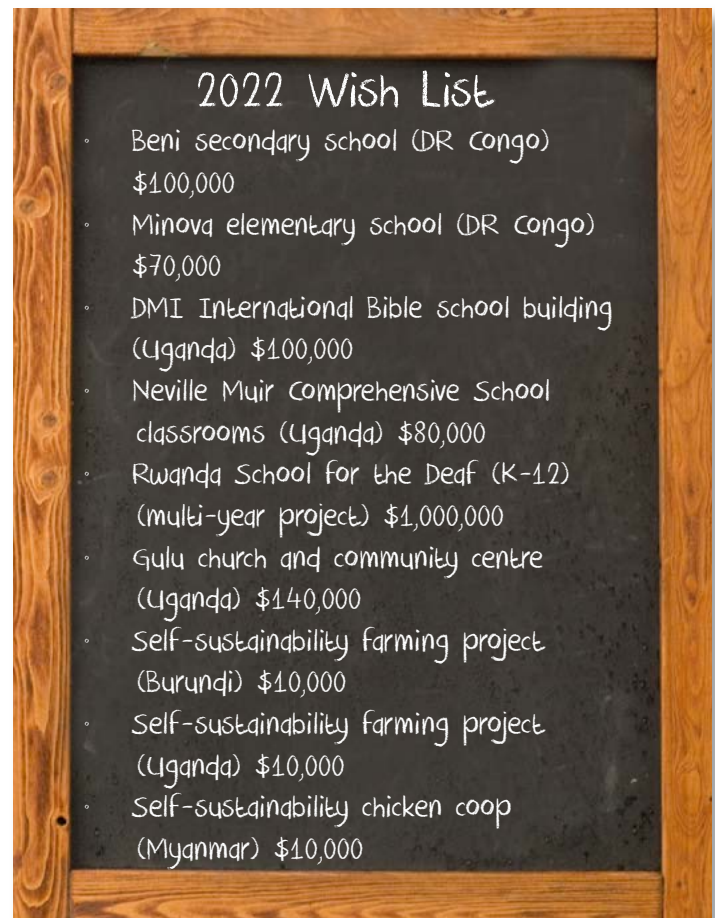 2022 Wish List
◦ Beni secondary school (DR Congo)
$100,000
◦ Minova elementary school (DR Congo)
$70,000
◦ DMI International Bible school building
(Uganda) $100,000
◦ Neville Muir Comprehensive School
classrooms (Uganda) $80,000
◦ Rwanda School for the Deaf (K-12)
(multi-year project) $1,000,000
◦ Gulu church and community centre
(Uganda) $140,000
◦ Self-sustainability farming project
(Burundi) $10,000
◦ Self-sustainability farming project
(Uganda) $10,000
◦ Self-sustainability chicken coop
(Myanmar) $10,000